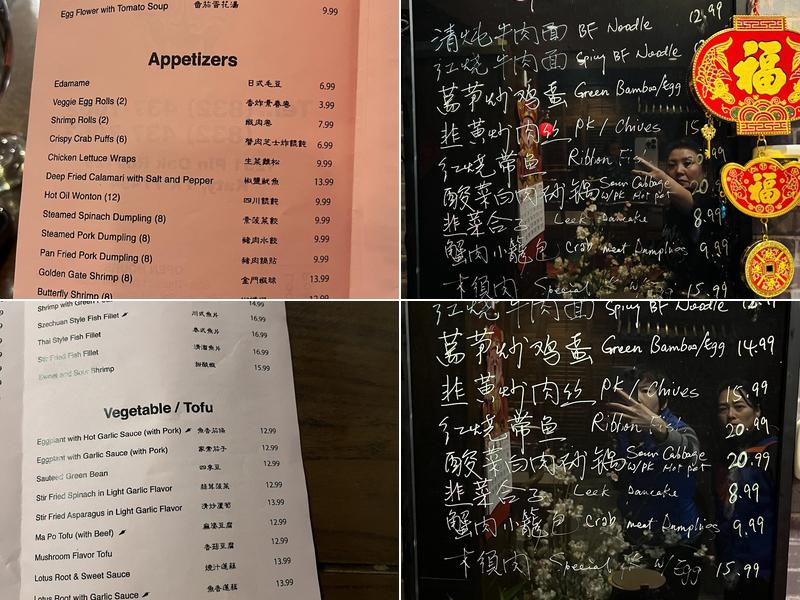 Egg Flower with Tomato Soup 番茄蛋花湯 9.99
Appetizers
Edamame 日式毛豆 6.99
Veggie Egg Rolls (2) 香炸素春卷 3.99
Shrimp Rolls (2) 蝦肉卷 7.99
Crispy Crab Puffs (6) 蟹肉芝士炸餛飩 6.99
Chicken Lettuce Wraps 生菜雞松 9.99
Deep Fried Calamari with Salt and Pepper 椒鹽魷魚 13.99
Hot Oil Wonton (12) 四川餛飩 9.99
Steamed Spinach Dumpling (8) 素菠菜餃 9.99
Steamed Pork Dumpling (8) 豬肉水餃 9.99
Pan Fried Pork Dumpling (8) 豬肉鍋貼 9.99
Golden Gate Shrimp (8) 金門蝦球 13.99
Butterfly Shrimp (8)
清炖牛肉面 BF Noodle 12.99
红烧牛肉面 Spicy BF Noodle
萵笋炒鸡蛋 Green Bamboo/Egg
韭黄炒肉丝 PK / Chives 15
红烧带鱼 Ribbon Fis
酸菜白肉砂锅 Sour Cabbage w/PK Hot pot 20
韭菜合子 Leek Pancake 8.99
蟹肉小籠包 Crab meat Dumplings 9.99
木須肉 Special 15.99
福
福
Shrimp with Green 14.99
Szechuan Style Fish Fillet 川式魚片 16.99
Thai Style Fish Fillet 泰式魚片 16.99
Stir Fried Fish Fillet 清溜魚片 16.99
Sweet and Sour Shrimp 甜酸蝦 15.99
Vegetable / Tofu
Eggplant with Hot Garlic Sauce (with Pork) 魚香茄條 12.99
Eggplant with Garlic Sauce (with Pork) 家常茄子 12.99
Sauteed Green Bean 四季豆 12.99
Stir Fried Spinach in Light Garlic Flavor 蒜茸菠菜 12.99
Stir Fried Asparagus in Light Garlic Flavor 清炒蘆筍 13.99
Ma Po Tofu (with Beef) 麻婆豆腐 12.99
Mushroom Flavor Tofu 香菇豆腐 12.99
Lotus Root & Sweet Sauce 燒汁蓮藕 13.99
Lotus Root with Garlic Sauce 魚香蓮藕 13.99
红烧牛肉面 Spicy BF Noodle
萵笋炒鸡蛋 Green Bamboo/Egg 14.99
韭黄炒肉丝 PK / Chives 15.99
红烧带鱼 Ribbon Fish 20.99
酸菜白肉砂锅 Sour Cabbage w/PK Hot pot 20.99
韭菜合子 Leek Pancake 8.99
蟹肉小籠包 Crab meat Dumplings 9.99
木須肉 Special PK w/ Egg 15.99